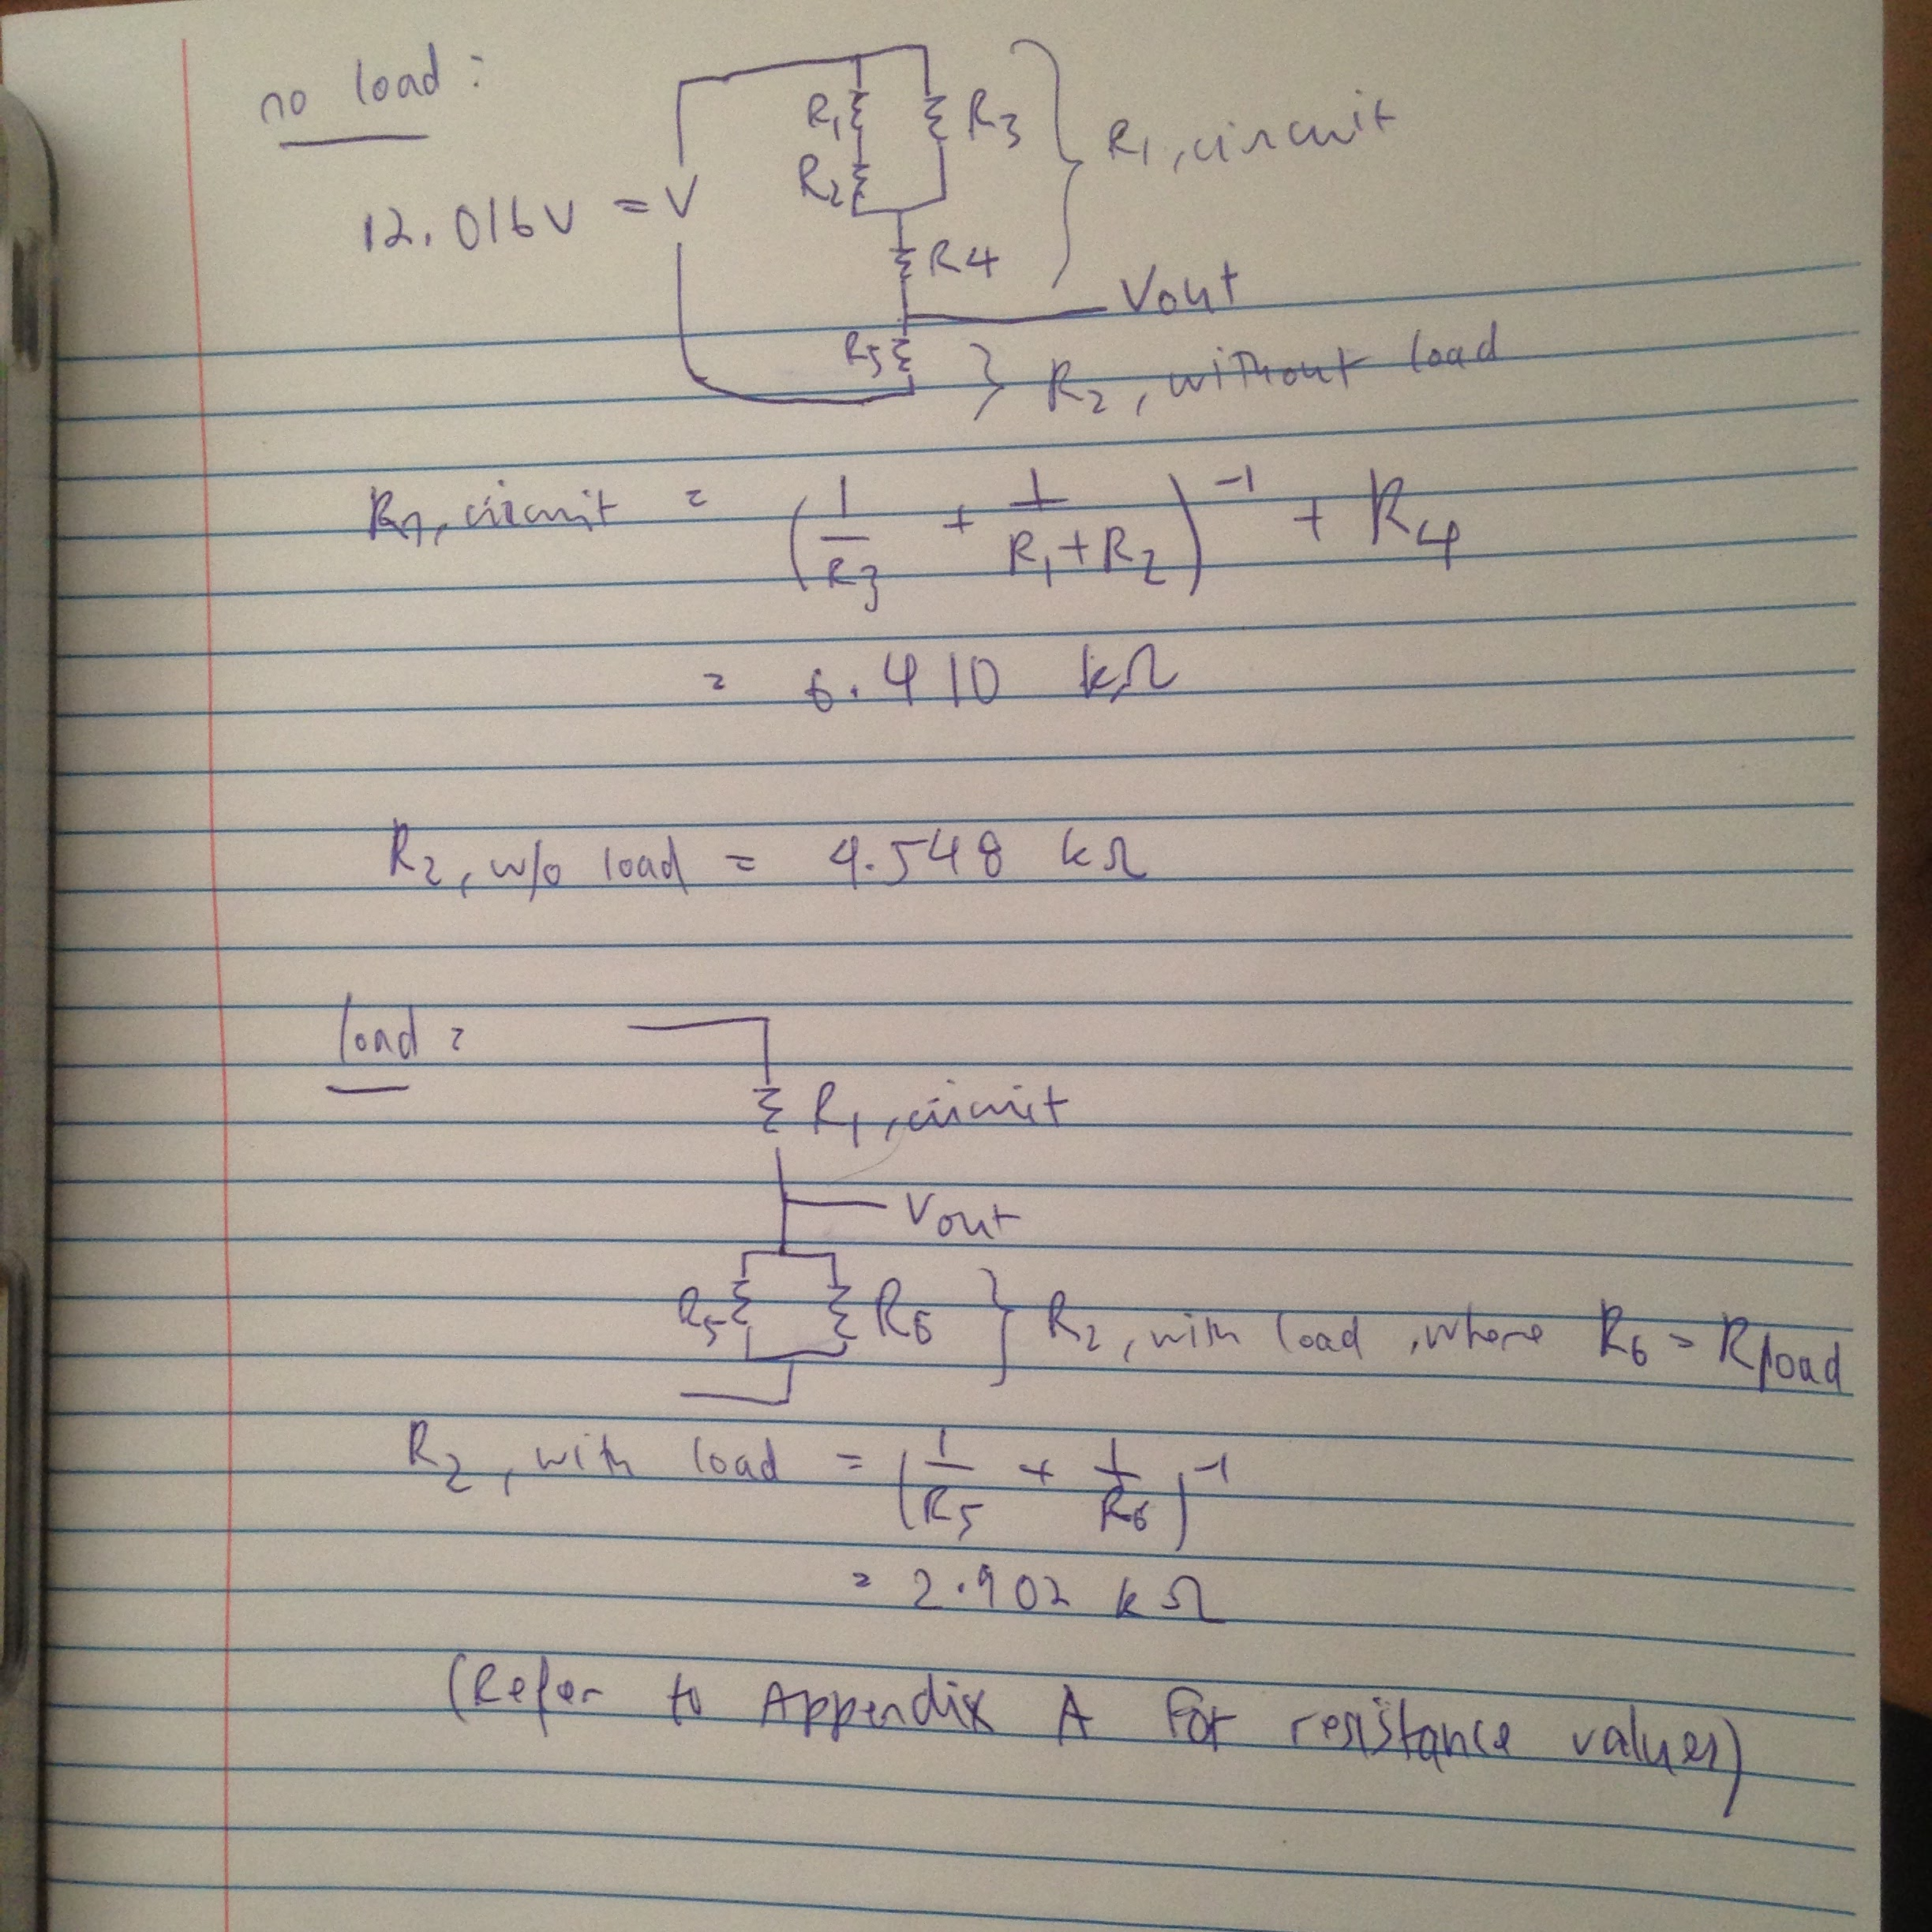 no load :
R1 R3 } R1, circuit
R2
12.016V = V
R4
Vout
R5 } R2, without load
R1, circuit = (1/R3 + 1/(R1+R2))^-1 + R4
= 6.410 kΩ
R2, w/o load = 4.548 kΩ
load :
R1, circuit
Vout
R5 R6 } R2, with load, where R6 = Rload
R2, with load = (1/R5 + 1/R6)^-1
= 2.902 kΩ
(Refer to Appendix A For resistance values)